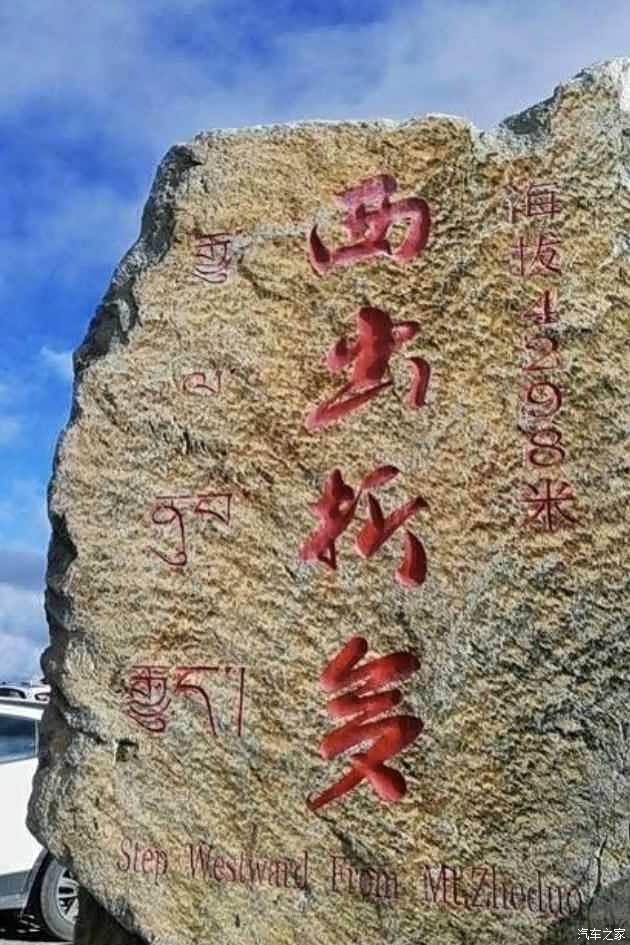 海拔4298米
西出折多
ལ
ནུབ
Step Westward From Mt.Zheduo
汽车之家